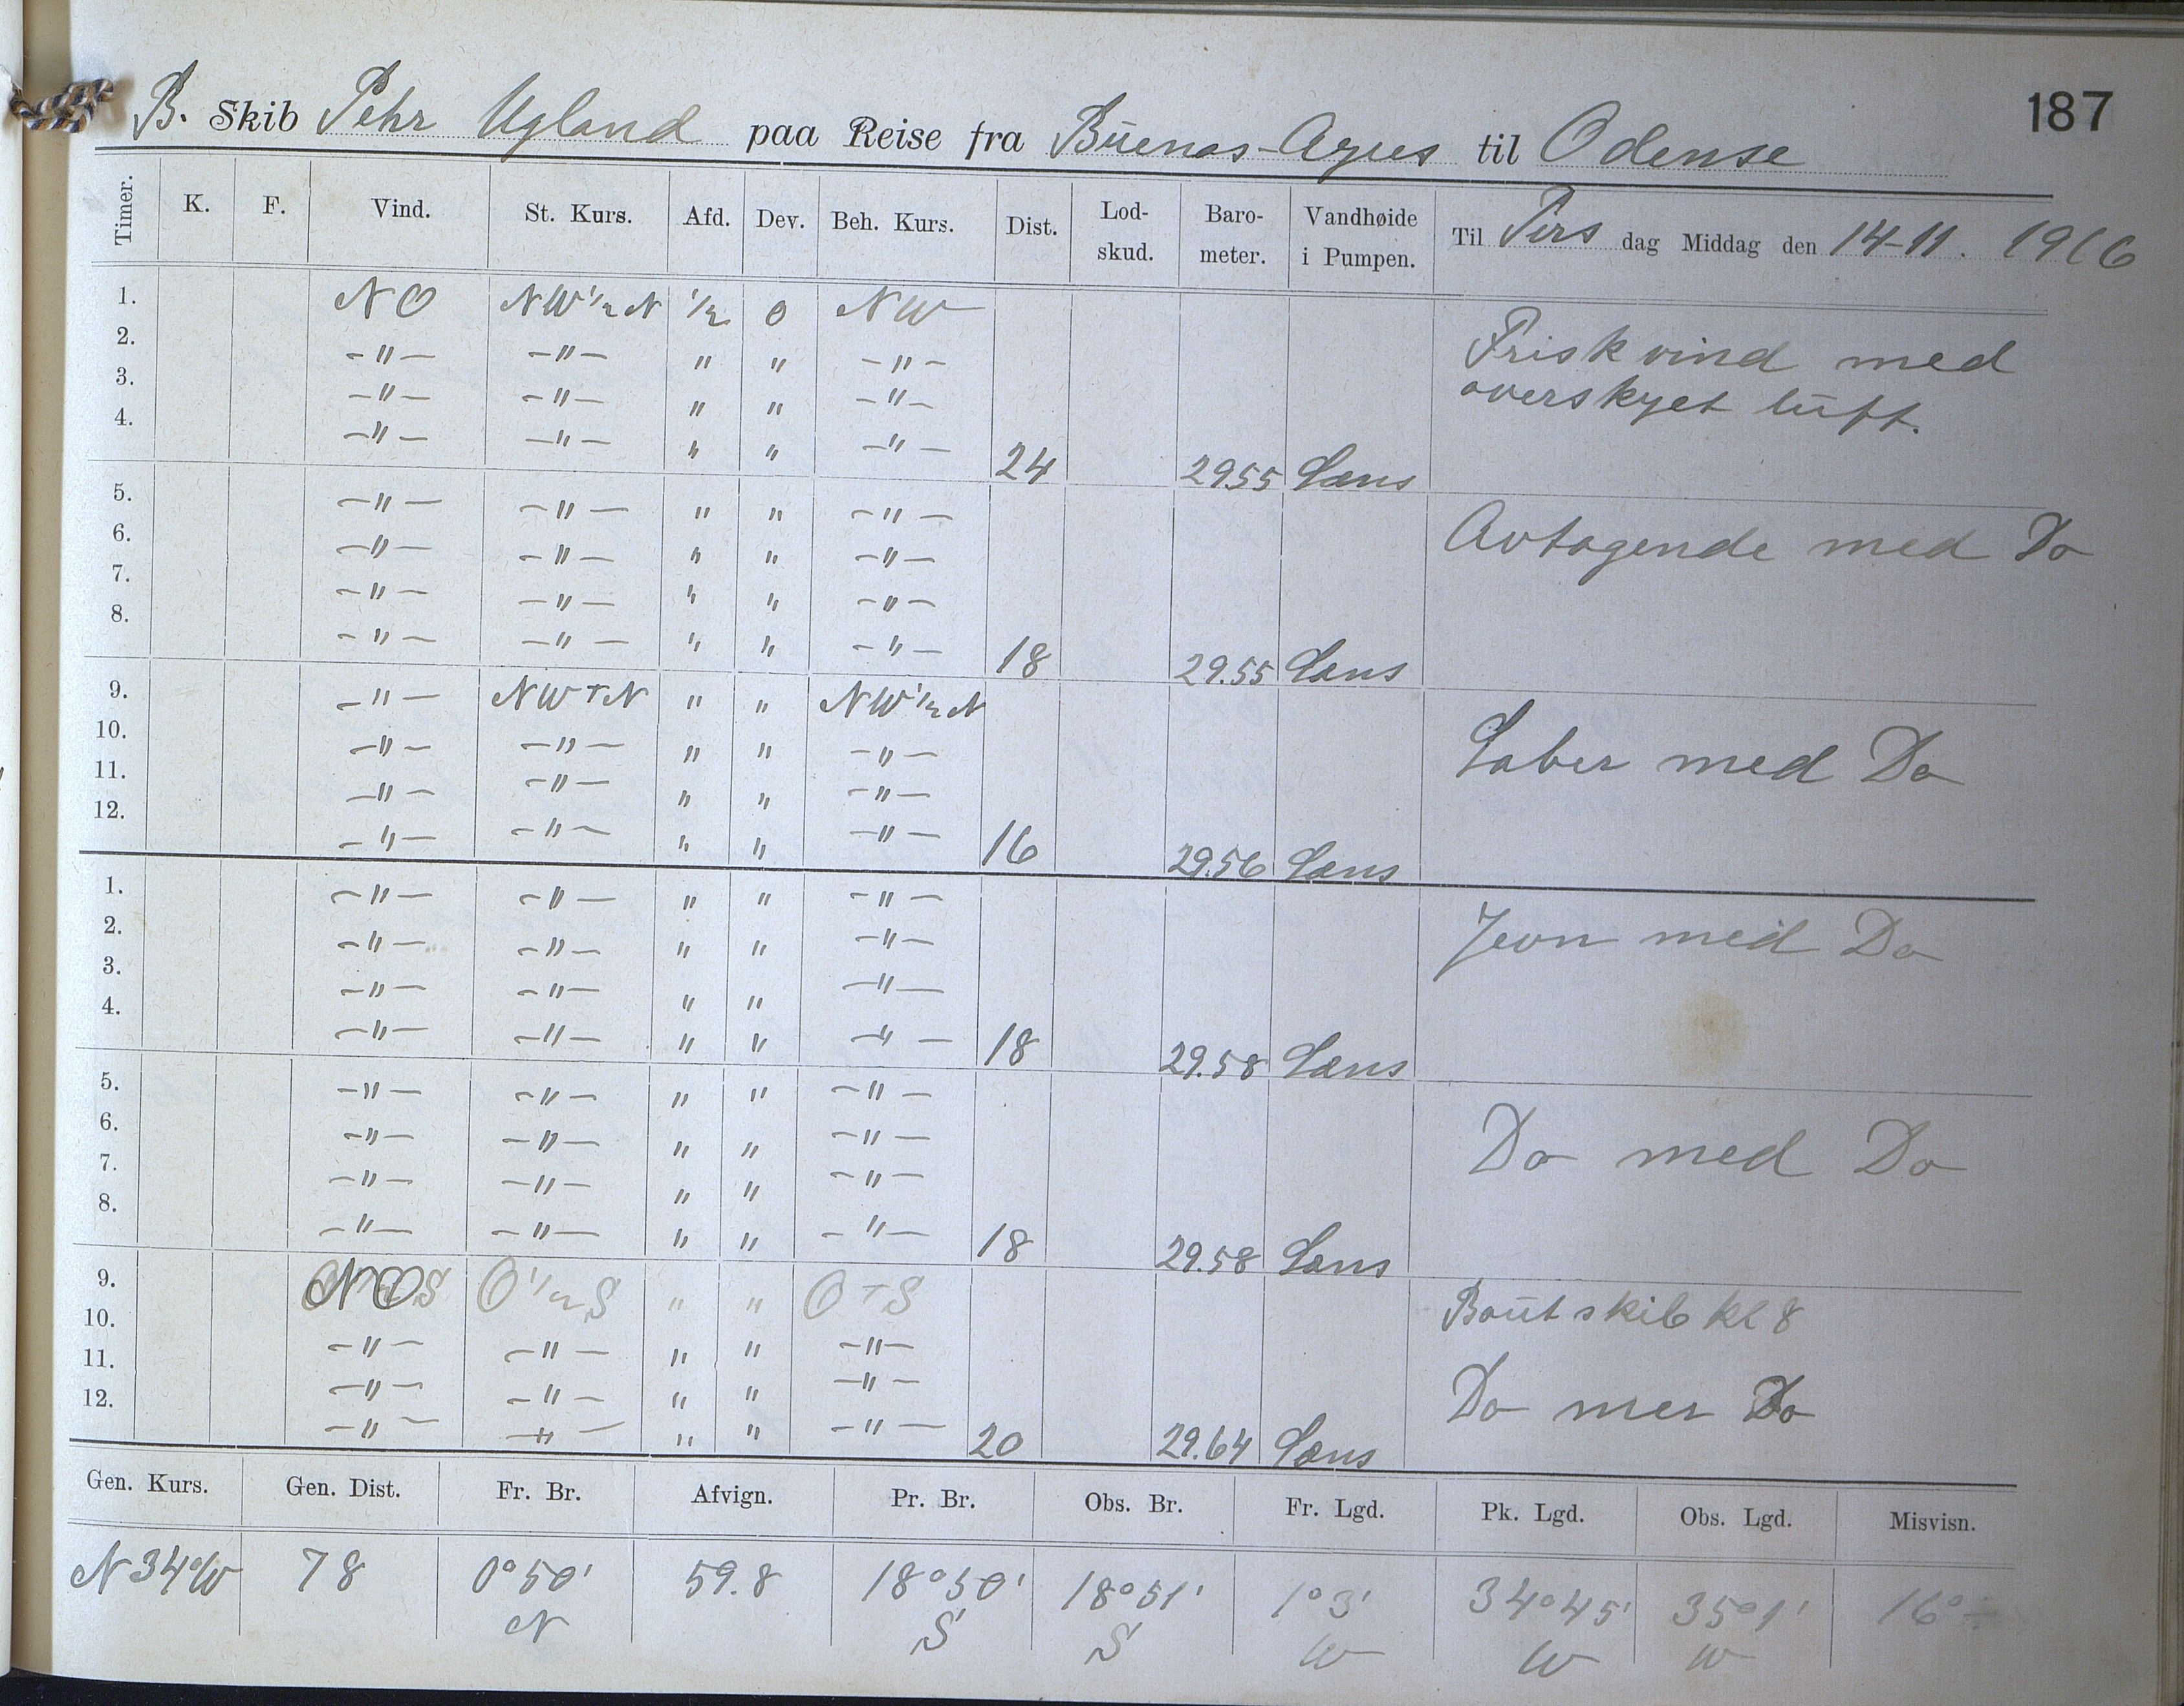 187
B. Skib Pehr Ugland paa Reise fra Buenos-Ayres til Odense
Timer. K. F. Vind. St. Kurs. Afd. Dev. Beh. Kurs. Dist. Lod-skud. Baro-meter. Vandhøide i Pumpen. Til Tirs dag Middag den 14-11. 1916
1. NO NW½N ½ 0 NW
2. -"- -"- " " -"- Frisk vind med
3. -"- -"- " " -"- overskyet luft.
4. -"- -"- " " -"- 24 2955 Læns
5. -"- -"- " " -"-
6. -"- -"- " " -"- Avtagende med Do
7. -"- -"- " " -"-
8. -"- -"- " " -"- 18 29.55 Læns
9. -"- NWTN " " NW½N
10. -"- -"- " " -"- Laber med Do
11. -"- -"- " " -"-
12. -"- -"- " " -"- 16 29.56 Læns
1. -"- -"- " " -"-
2. -"- -"- " " -"- Jevn med Do
3. -"- -"- " " -"-
4. -"- -"- " " -"- 18 29.58 Læns
5. -"- -"- " " -"-
6. -"- -"- " " -"- Do med Do
7. -"- -"- " " -"-
8. -"- -"- " " -"- 18 29.58 Læns
9. NO O½S " " OTS Bout skib kl 8
10. -"- -"- " " -"-
11. -"- -"- " " -"- Do mer Do
12. -"- -"- " " -"- 20 29.64 Læns
Gen. Kurs. Gen. Dist. Fr. Br. Afvign. Pr. Br. Obs. Br. Fr. Lgd. Pk. Lgd. Obs. Lgd. Misvisn.
N34°W 78 0°50' 59.8 18°50' 18°51' 1°3' 34°45' 35°1' 16°
N S S W W W